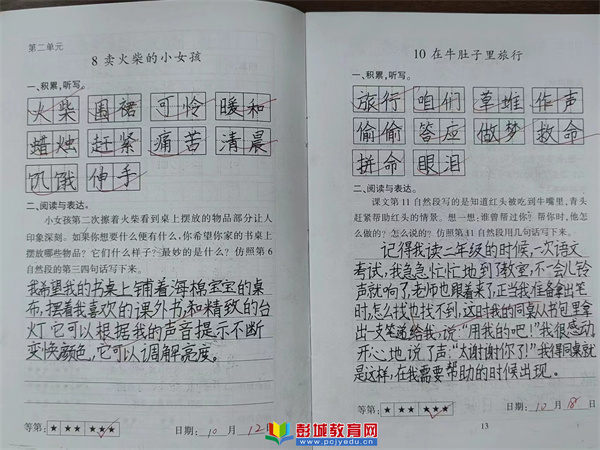 第二单元
8 卖火柴的小女孩
一、积累,听写。
火柴 围裙 可怜 暖和
蜡烛 赶紧 痛苦 清晨
饥饿 伸手
二、阅读与表达。
小女孩第二次擦着火柴看到桌上摆放的物品部分让人
印象深刻。如果你想要什么便有什么,你希望你家的书桌上
摆放哪些物品?它们什么样子?最妙的是什么?仿照第6
自然段的第三四句话写下来。
我希望我的书桌上铺着海棉宝宝的桌
布,摆着我喜欢的课外书,和精致的台
灯它可以根据我的声音提示不断
变换颜色,它可以调解亮度。
等第: ★ ★★ ★★★
日期: 10 月 12
10 在牛肚子里旅行
一、积累,听写。
旅行 咱们 草堆 作声
偷偷 答应 做梦 救命
拼命 眼泪
二、阅读与表达。
课文第11自然段写的是知道红头被吃到牛嘴里,青头
赶紧帮助红头的情景。想一想:谁曾帮过你?帮你时,他怎
么做的?怎么说的?仿照第11自然段用几句话写下来。
记得我读二年级的时候,一次语文
考试,我急急忙忙地到了教室,不一会儿铃
声就响了,老师也跟着来了,正当我准备拿出笔
时,怎么找也找不到,这时我的同桌从书包里拿
出一支笔递给我,说:“用我的吧!”我很感动
开心地说了声:“太谢谢你了!”我得同桌就
是这样,在我需要帮助的时候出现。
等第: ★ ★★ ★★★
日期: 10 月 18 日
13
彭城教育网
www.pcjyedu.cn